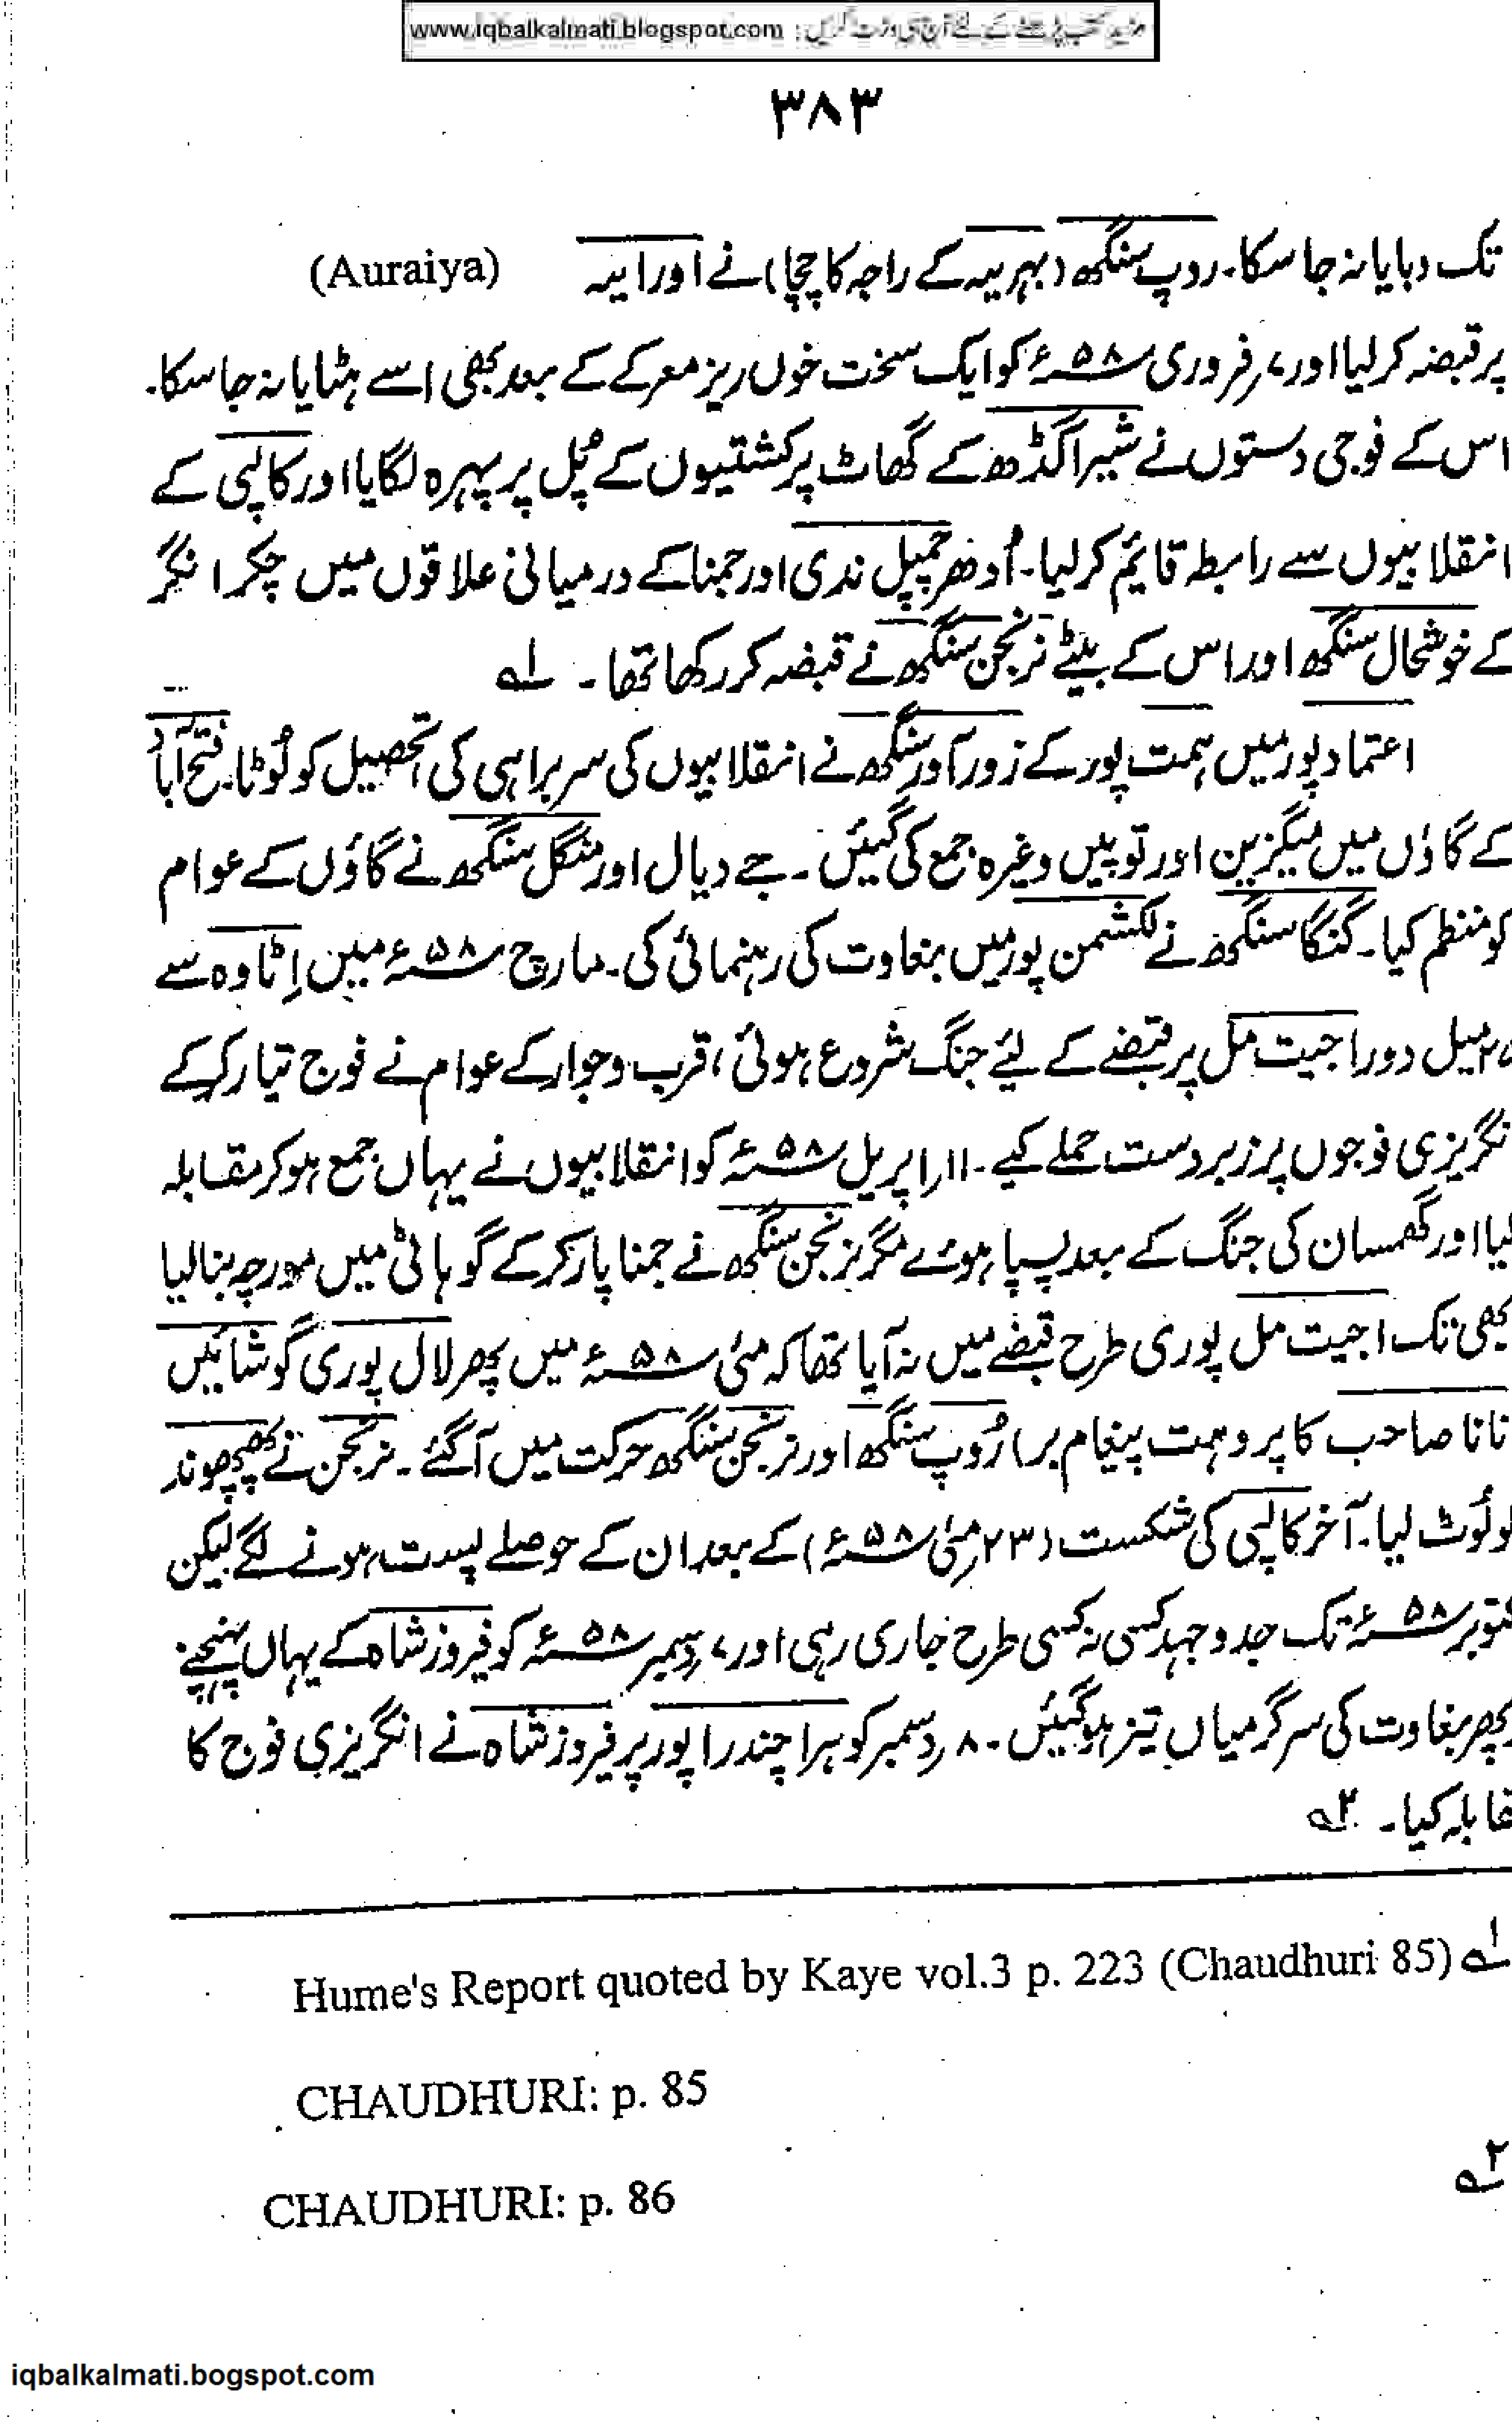 مزید کتب پڑھنے کے لئے آج ہی وزٹ کریں : www.iqbalkalmati.blogspot.com
۳۸۳
تک دبایا نہ جا سکا۔ روپ سنگھ (بہریہ کے راجہ کا چچا) نے اورایہ (Auraiya)
پر قبضہ کر لیا اور ۷ فروری ۵۸ء کو ایک سخت خوں ریز معرکے کے بعد بھی اسے ہٹایا نہ جا سکا۔
اس کے فوجی دستوں نے شیرا گڈھ کے گھاٹ پر کشتیوں کے پُل پر پہرہ لگایا اور کالپی کے
انقلابیوں سے رابطہ قائم کر لیا۔ اُدھر چمپل ندی اور جمنا کے درمیانی علاقوں میں چکرا نگر
کے خوشحال سنگھ اور اس کے بیٹے نرنجن سنگھ نے قبضہ کر رکھا تھا۔ ۱؎
اعتماد پور میں ہمت پور کے زور آور سنگھ نے انقلابیوں کی سربراہی کی تحصیل کو لُوٹا۔ فتح آباد
کے گاؤں میں میگزین اور توپیں وغیرہ جمع کی گئیں۔ جے دیال اور منگل سنگھ نے گاؤں کے عوام
کو منظم کیا۔ گنگا سنگھ نے لکشمن پور میں بغاوت کی رہنمائی کی۔ مارچ ۵۸ء میں اِٹاوہ سے
میل دور اجیت مل پر قبضے کے لئے جنگ شروع ہوئی، قرب و جوار کے عوام نے فوج تیار کر کے
نگریزی فوجوں پر زبردست حملے کیے۔ ۱۱ اپریل ۵۸ء کو انقلابیوں نے یہاں جمع ہو کر مقابلہ
کیا اور گھمسان کی جنگ کے بعد پسپا ہوئے مگر نرنجن سنگھ نے جمنا پار کر کے گوہاٹی میں مورچہ بنا لیا
بھی تک اجیت مل پوری طرح قبضے میں نہ آیا تھا کہ مئی ۵۸ء میں پھر لال پوری گوشائیں
نانا صاحب کا پروہت پیغام بر) رُوپ سنگھ اور نرنجن سنگھ حرکت میں آ گئے۔ نرنجن نے پھپھوند
لُوٹ لیا۔ آخر کالپی کی شکست (۲۳ مئی ۵۸ء) کے بعد ان کے حوصلے پست ہونے لگے لیکن
کتوبر ۵۸ء تک جد و جہد کسی نہ کسی طرح جاری رہی اور ۷ دسمبر ۵۸ء کو فیروز شاہ کے یہاں پہنچنے
پھر بغاوت کی سرگرمیاں تیز ہو گئیں۔ ۸ دسمبر کو ہرا چندرا پور پر فیروز شاہ نے انگریزی فوج کا
قابلہ کیا۔ ۲؎
۱؎ Hume's Report quoted by Kaye vol.3 p. 223 (Chaudhuri 85)
CHAUDHURI: p. 85
۲؎ CHAUDHURI: p. 86
iqbalkalmati.bogspot.com